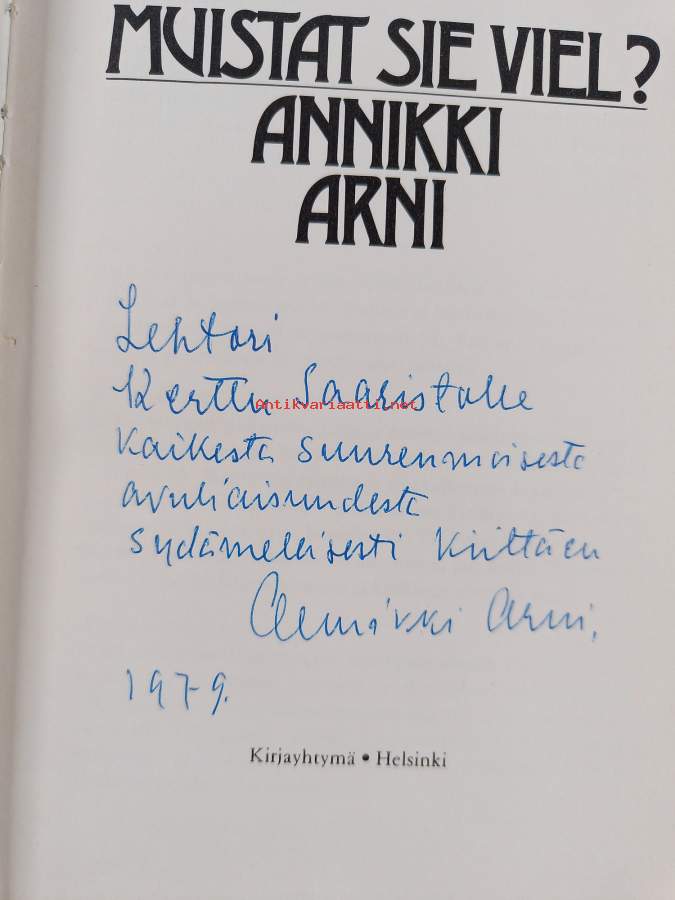 MUISTAT SIE VIEL?
ANNIKKI
ARNI
Lehtori
Kerttu Saaristolle
Antikvariaatti.net
kaikesta suurenmoisesta
avuliaisuudesta
sydämellisesti kiittäen
Annikki Arni.
1979.
Kirjayhtymä • Helsinki